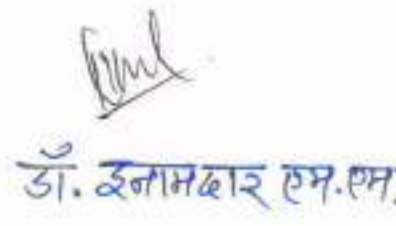 डॉ. इनामदार एम.एम.